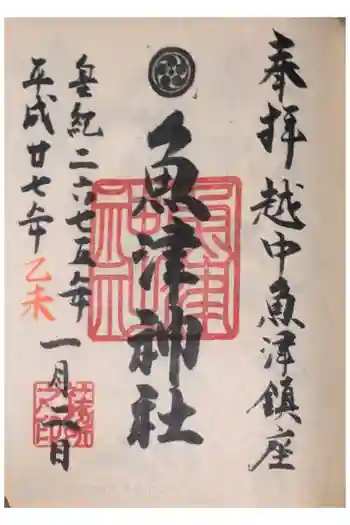 奉拝 越中魚津鎮座
魚津神社
魚津神社
皇紀二六七五年
平成廿七年 乙未 一月二日